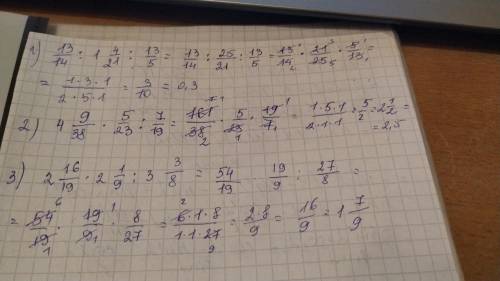 1) 13/14 : 1 4/21 : 13/5 = 13/14 : 25/21 : 13/5 = 13/14 · 21/25 · 5/13 =
= 1·3·1/2·5·1 = 3/10 = 0,3
2) 4 9/38 · 5/23 : 7/19 = 161/38 · 5/23 · 19/7 = 1·5·1/2·1·1 = 5/2 = 2 1/2 =
= 2,5
3) 2 16/19 · 2 1/9 : 3 3/8 = 54/19 19/9 : 27/8 =
= 54/19 · 19/9 · 8/27 = 6·1·8/1·1·27 = 2·8/9 = 16/9 = 1 7/9